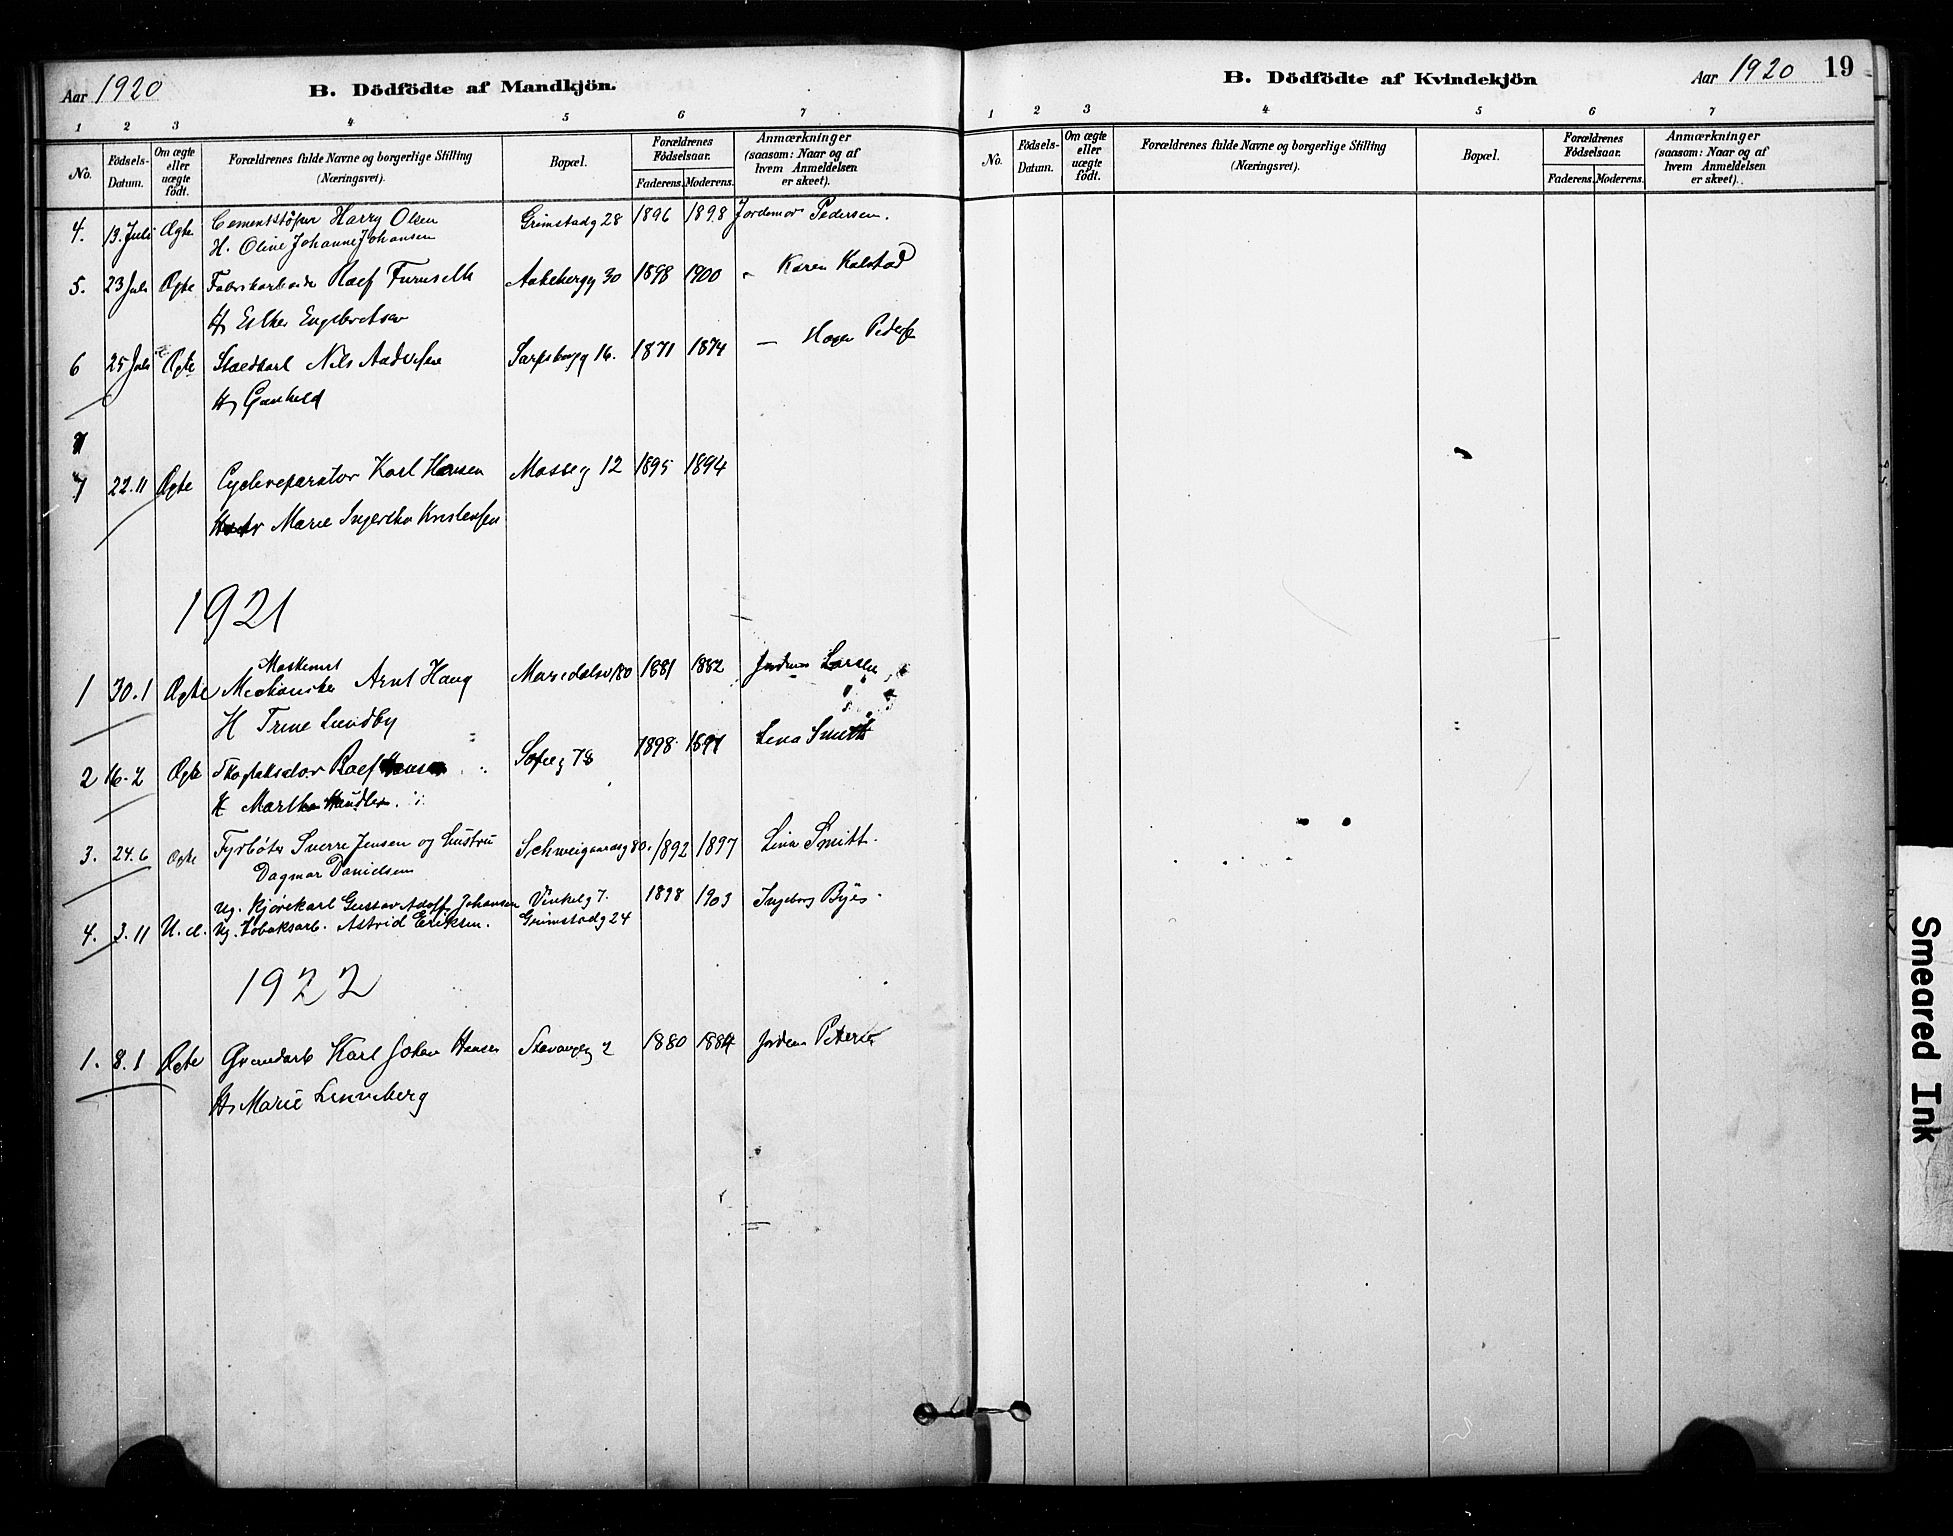 Aar 1920
B. Dödfödte af Mandkjön.
1 2 3 4 5 6 7
No.
Födsels-Datum.
Om ægte eller uægte födt.
Forældrenes fulde Navne og borgerlige Stilling (Næringsvei).
Bopæl.
Forældrenes Födselsaar.
Faderens. Moderens.
Anmærkninger (saasom: Naar og af hvem Anmeldelsen er skeet).
4. 13. Juli Ægte Cementstøper Harry Olsen Grimstadg 28 1896 1898 Jordemor Pedersen.
H. Oline Johanne Johansen
5. 23 Juli Ægte Fabrikarbeider Rolf Furuseth Aakebergv 30 1898 1900 - Karen Kalstad
H Esther Engebretsen
6 25 Juli Ægte Staldkarl Nils Andersen Sarpsborgg 16. 1871 1874 —
H Gunhild
7 22.11 Ægte Cyclereparatør Karl Hansen Mosseg 12 1895 1894
Marie Kristensen
1921
1 30.1 Ægte Mekaniker Arnt Haug Maridalsv 180 1881 1882 Jordmor Larsen
H Trine Lundby
2 16.2 Ægte Rolf Sofieg 78 1898 Lina Smith
H Martha
3. 24.6 Ægte Fyrbøter Sverre Jensen og Hustru Schweigaardsg 80. 1892 1897 Lina Smitt.
Dagmar Danielsen
Ug. Kjørekarl Gustav Adolf Johansen Vinkelg 7. 1898 1903 Ingeborg Byes.
4. 3.11 U.æ. Ug. Tobaksarb. Astrid Eriksen. Grimstadg 24
1922
1. 8.1 Ægte Karl Johan Hansen Stavangerg 2 1880 1884 Jordem
H Marie Lenneberg
B. Dödfödte af Kvindekjön
Aar 1920 19
1 2 3 4 5 6 7
No.
Födsels-Datum.
Om ægte eller uægte födt.
Forældrenes fulde Navne og borgerlige Stilling (Næringsvei).
Bopæl.
Forældrenes Födselsaar.
Faderens. Moderens.
Anmærkninger (saasom: Naar og af hvem Anmeldelsen er skeet).
Smeared Ink